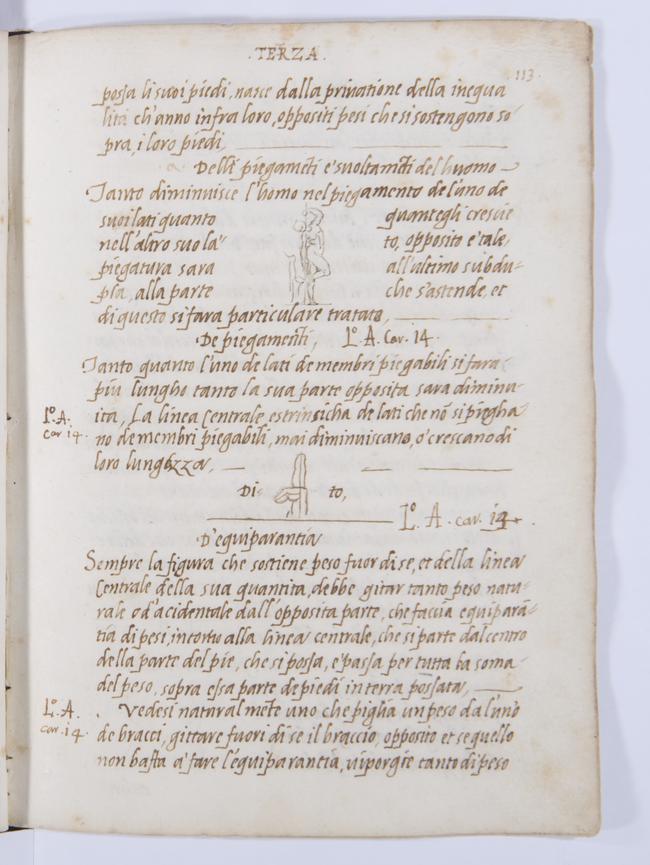 .TERZA.
113.
possa li suoi piedi, nasce dalla privatione della inequa
lità ch'anno infra loro, oppositi pesi che si sostengono so
pra, i loro piedi,
Delli piegamēti e' suoltamēti del huomo
Tanto diminuisce l'homo nel piegamento de l'uno de
suoi lati quanto quantegli crescie
nell'altro suo la" to, opposito e' tale,
piegatura sara all'altimo subdu-
pla, alla parte che s'astende, et
di questo si fara particulare tratato,
De piegamēti, L.º A. Car. 14.
Tanto quanto l'uno de lati de membri piegabili si fara
piu lungho tanto la sua parte opposita sara diminu-
L.º A. car 14. ita, La linea Centrale estrinsicha de lati che nō si piegha
no de membri piegabili, mai diminuiscano, o' crescano di
loro lungezza,
Di- to,
L.º A. car. 14.
D'equiparantia
Sempre la figura che sostiene peso fuor di se, et della linea
Centrale della sua quantita, debbe gitar tanto peso natu-
rale o' d'acidentale dall'opposita parte, che faccia equiparā-
tia di pesi, intorto alla linea centrale, che si parte dal centro
della parte del pie, che si possa, e' passa per tutta la soma
del peso, sopra essa parte de piedi in terra possata,
L.º A. car. 14. Vedesi natural mēte uno che piglia un peso da l'uno
de bracci, gittare fuori di se il braccio, opposito et se quello
non basta a' fare l'equiparantia, vi porgie tanto di peso